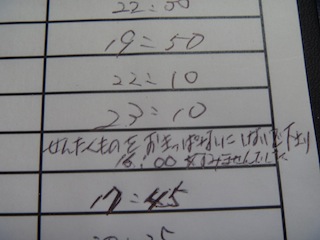 22:50
19:50
22:10
23:10
せんたくものをおきっぱなしに
16:00 すみませんでした
17:45